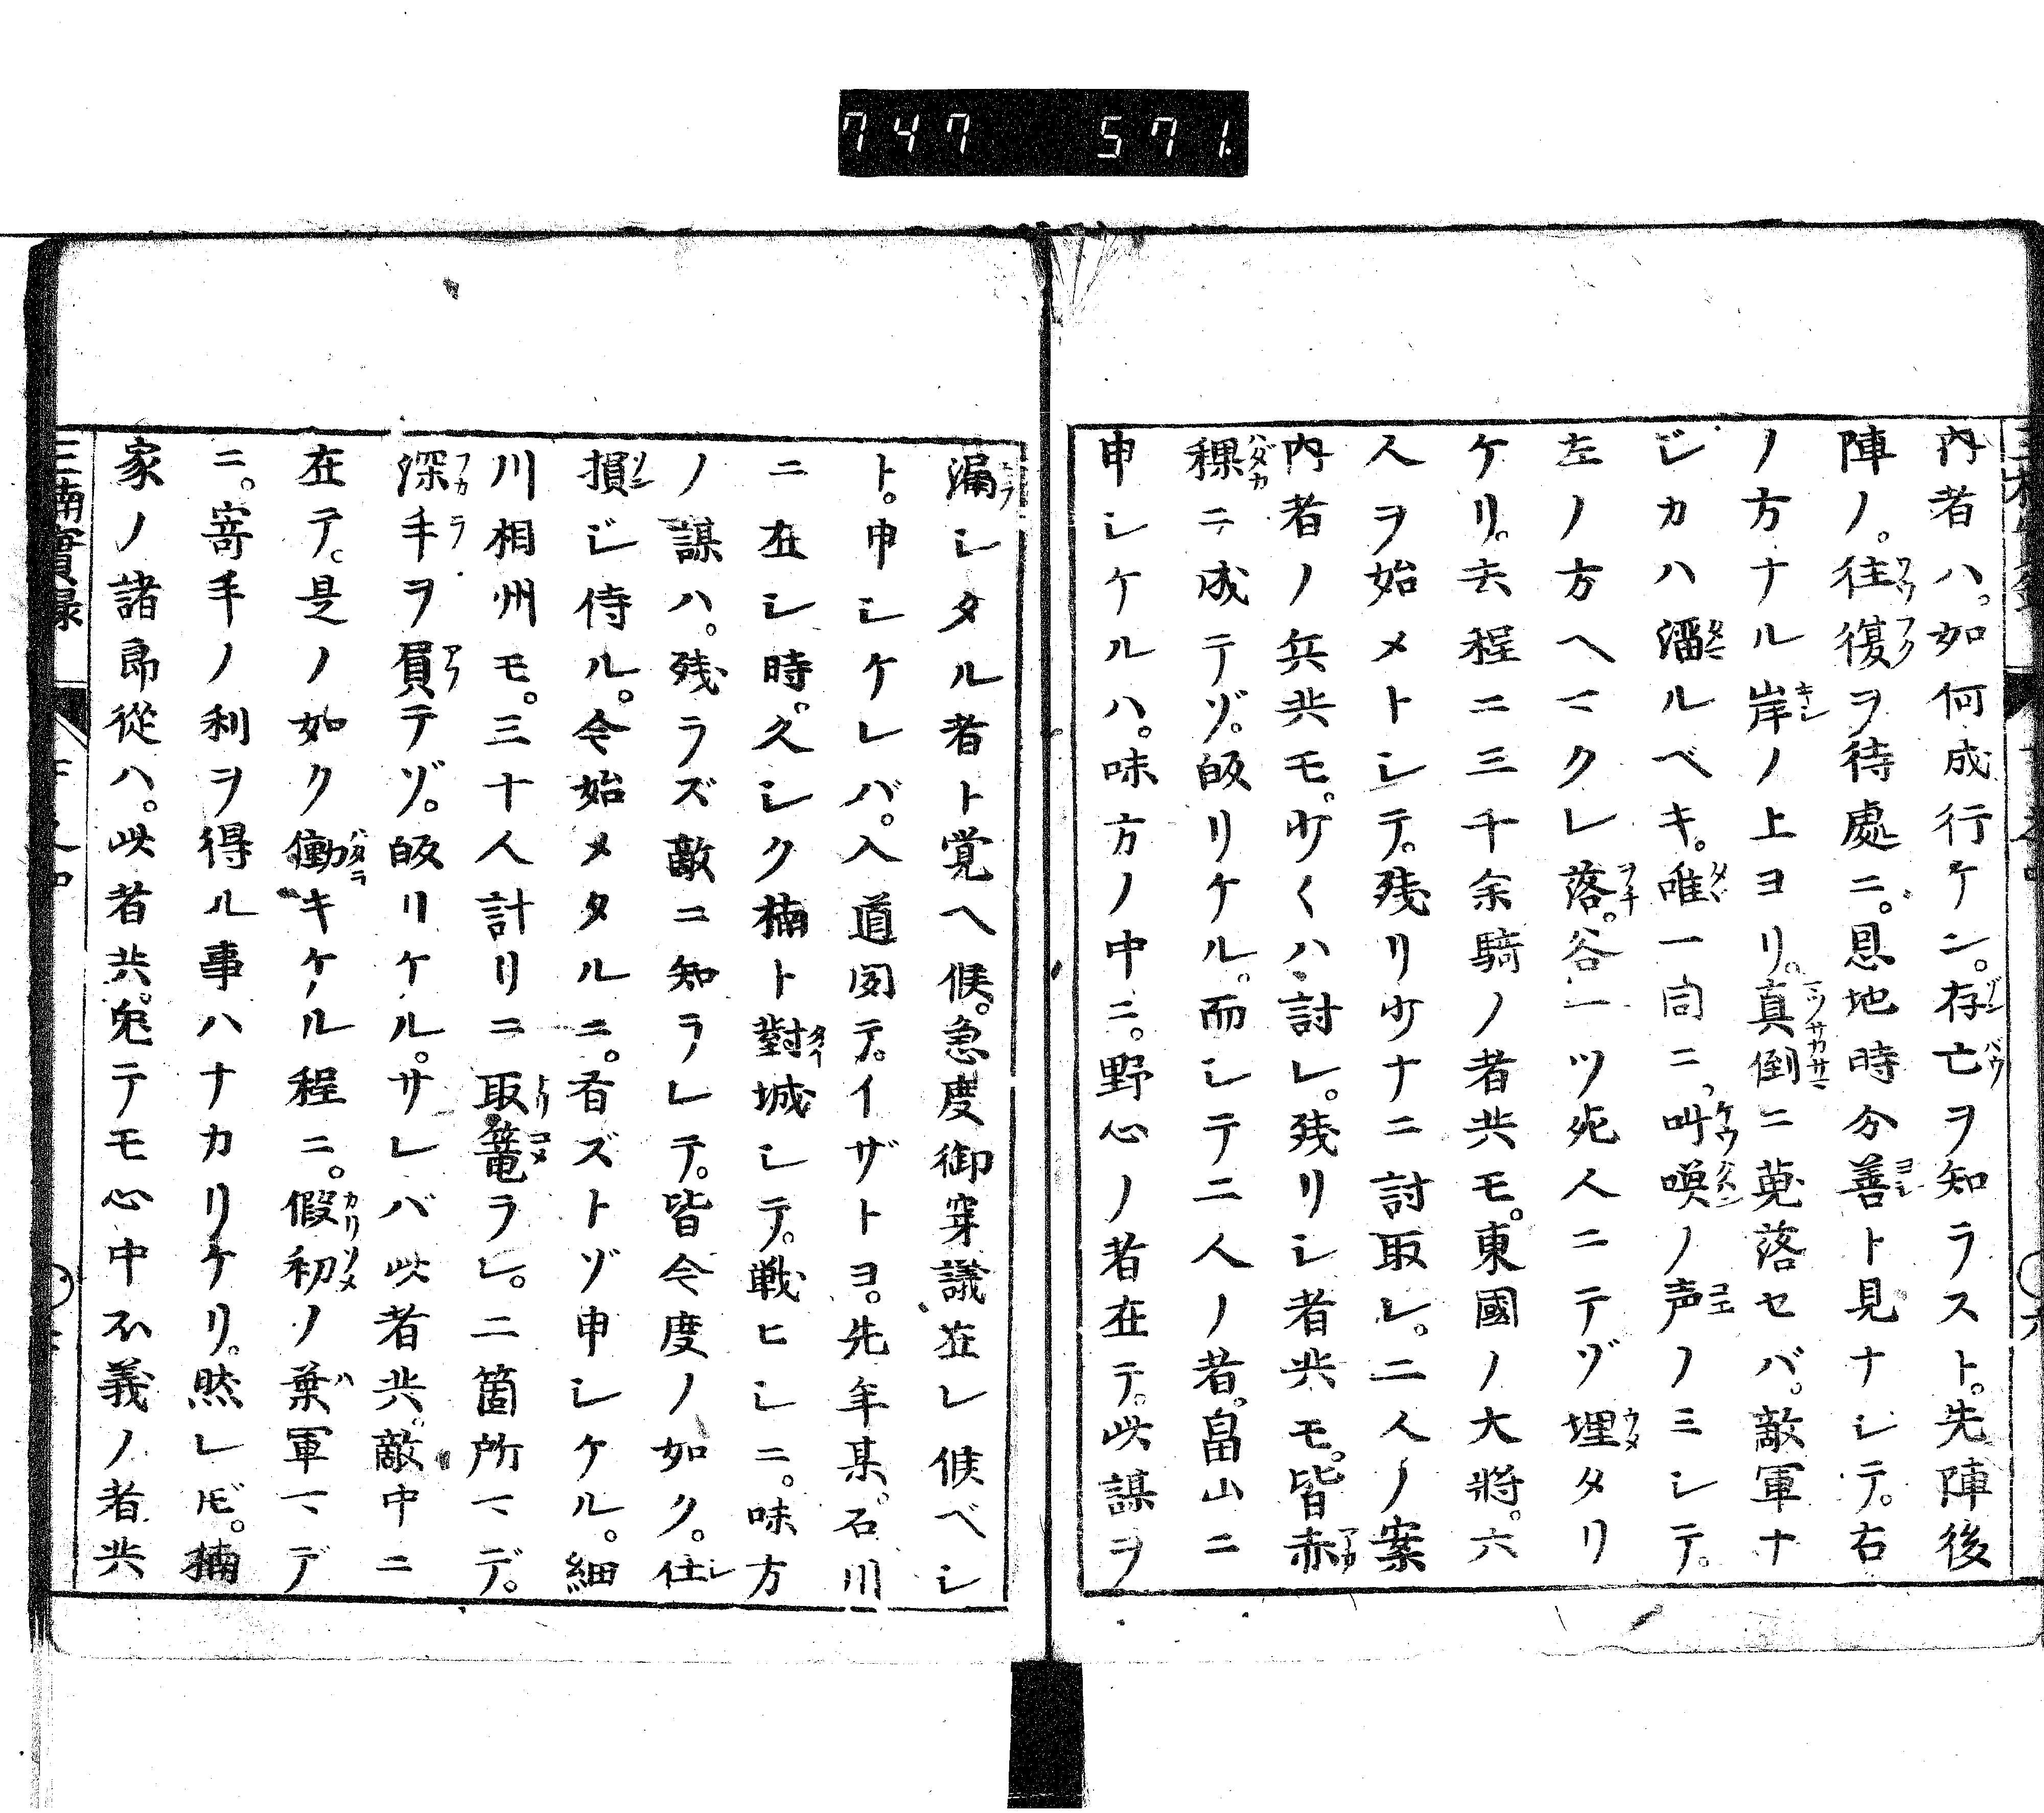 747 571.
内者ハ。如何成行ケン。存亡ヲ知ラスト。先陣後
陣ノ。往復ヲ待處ニ。恩地時分善ト見ナシテ。右
ノ方ナル岸ノ上ヨリ。真倒ニ莵落セバ。敵軍ナ
ジカハ溜ルベキ。唯一同ニ、叫喚ノ声ノミシテ。
左ノ方ヘマクレ落。谷一ツ死人ニテゾ埋タリ
ケリ。去程ニ三千余騎ノ者共モ。東國ノ大將。六
人ヲ始メトシテ。残リ少ナニ討取レ。二人ノ案
内者ノ兵共モ。少〱ハ討レ。残リシ者共モ。皆赤
裸ニ成テゾ。皈リケル。而シテ二人ノ者。畠山ニ
申シケルハ。味方ノ中ニ。野心ノ者在テ。此謀ヲ
漏シタル者ト覚ヘ候。急度御穿議在レ候ベシ
ト。申シケレバ。入道聞テ。イザトヨ。先年某。石川
ニ在シ時。久シク楠ト對城シテ。戦ヒシニ。味方
ノ謀ハ。残ラズ敵ニ知ラレテ。皆今度ノ如ク。仕
損ジ侍ル。今始メタルニ。有ズトゾ申シケル。細
川相州モ。三十人計リニ取篭ラレ。二箇所マデ。
深手ヲ負テゾ。皈リケル。サレバ此者共。敵中ニ
在テ。是ノ如ク働キケル程ニ。假初ノ葉軍マデ
ニ。寄手ノ利ヲ得ル事ハナカリケリ。然レ𪜈。楠
家ノ諸郎從ハ。此者共。兔テモ心中不義ノ者共
三楠實録